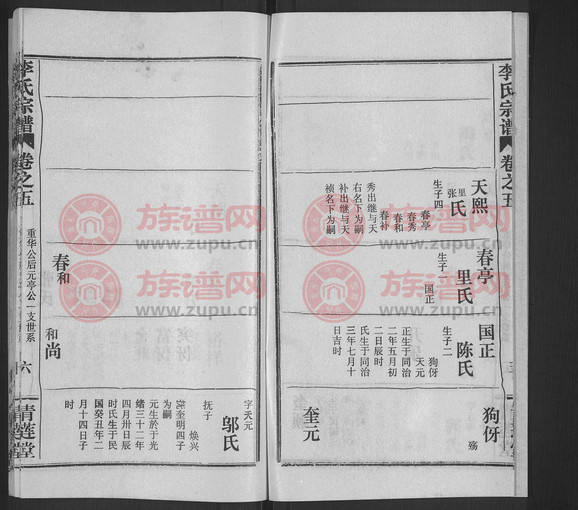 李氏宗谱
卷之五
天熙
里张氏
生子四
春亭
春秀
春和
春补
秀出继与天
右名下为嗣
补出继与天
桢名下为嗣
春亭
里氏
生子一
国正
国正
陈氏
生子二
狗伢
天元
正生于同治
二年五月初
二日辰时
氏生于同治
三年七月十
日吉时
狗伢
殇
奎元
字天元
邬氏
抚子
焕兴
奎明四子
为嗣
元生於于光
绪三十二年
四月卅日辰
时氏生于民
国癸丑年二
月十四日子
时
春和
和尚
李氏宗谱
卷之五
重华公后元亭公一支世系
六
清莲堂
族谱网
www.zupu.cn
族谱网
www.zupu.cn
族谱网
www.zupu.cn
族谱网
www.zupu.cn